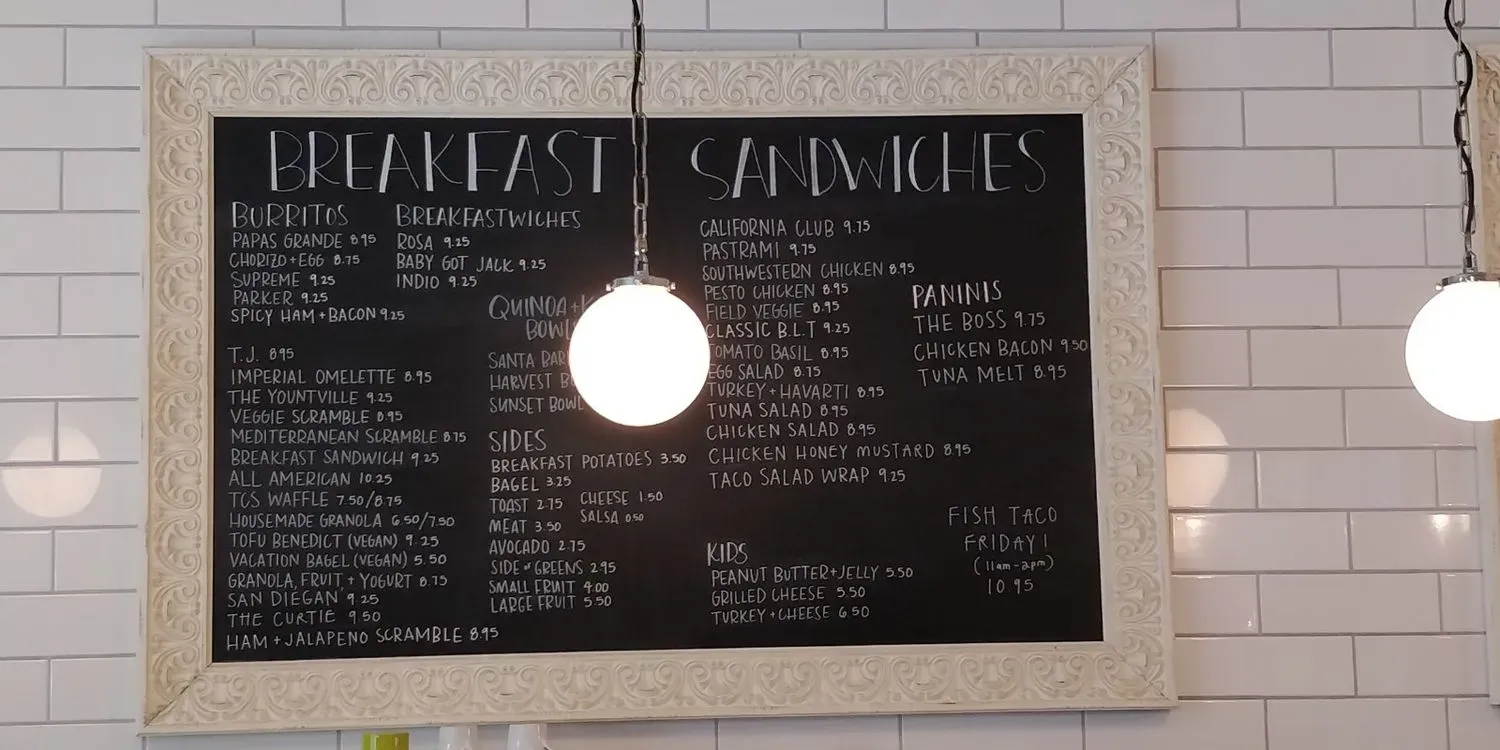 BREAKFAST
BURRITOS
PAPAS GRANDE 8.95
CHORIZO+EGG 8.75
SUPREME 9.25
PARKER 9.25
SPICY HAM+BACON 9.25
BREAKFASTWICHES
ROSA 9.25
BABY GOT JACK 9.25
INDIO 9.25
T.J. 8.95
IMPERIAL OMELETTE 8.95
THE YOUNTVILLE 9.25
VEGGIE SCRAMBLE 8.95
MEDITERRANEAN SCRAMBLE 8.75
BREAKFAST SANDWICH 9.25
ALL AMERICAN 10.25
TCS WAFFLE 7.50/8.75
HOUSEMADE GRANOLA 6.50/7.50
TOFU BENEDICT (VEGAN) 9.25
VACATION BAGEL (VEGAN) 5.50
GRANOLA, FRUIT + YOGURT 8.75
SAN DIEGAN 9.25
THE CURTIE 9.50
HAM+JALAPENO SCRAMBLE 8.95
QUINOA+
SANTA
HARVEST
SUNSET BOWL
SIDES
BREAKFAST POTATOES 3.50
BAGEL 3.25
TOAST 2.75
MEAT 3.50
AVOCADO 2.75
SIDE of GREENS 2.95
SMALL FRUIT 4.00
LARGE FRUIT 5.50
CHEESE 1.50
SALSA 0.50
SANDWICHES
CALIFORNIA CLUB 9.75
PASTRAMI 9.75
SOUTHWESTERN CHICKEN 8.95
PESTO CHICKEN 8.95
FIELD VEGGIE 8.95
CLASSIC B.L.T 9.25
TOMATO BASIL 8.95
EGG SALAD 8.75
TURKEY+HAVARTI 8.95
TUNA SALAD 8.95
CHICKEN SALAD 8.95
CHICKEN HONEY MUSTARD 8.95
TACO SALAD WRAP 9.25
PANINIS
THE BOSS 9.75
CHICKEN BACON 9.50
TUNA MELT 8.95
KIDS
PEANUT BUTTER+JELLY 5.50
GRILLED CHEESE 5.50
TURKEY+CHEESE 6.50
FISH TACO
FRIDAY!
(11am-2pm)
10.95